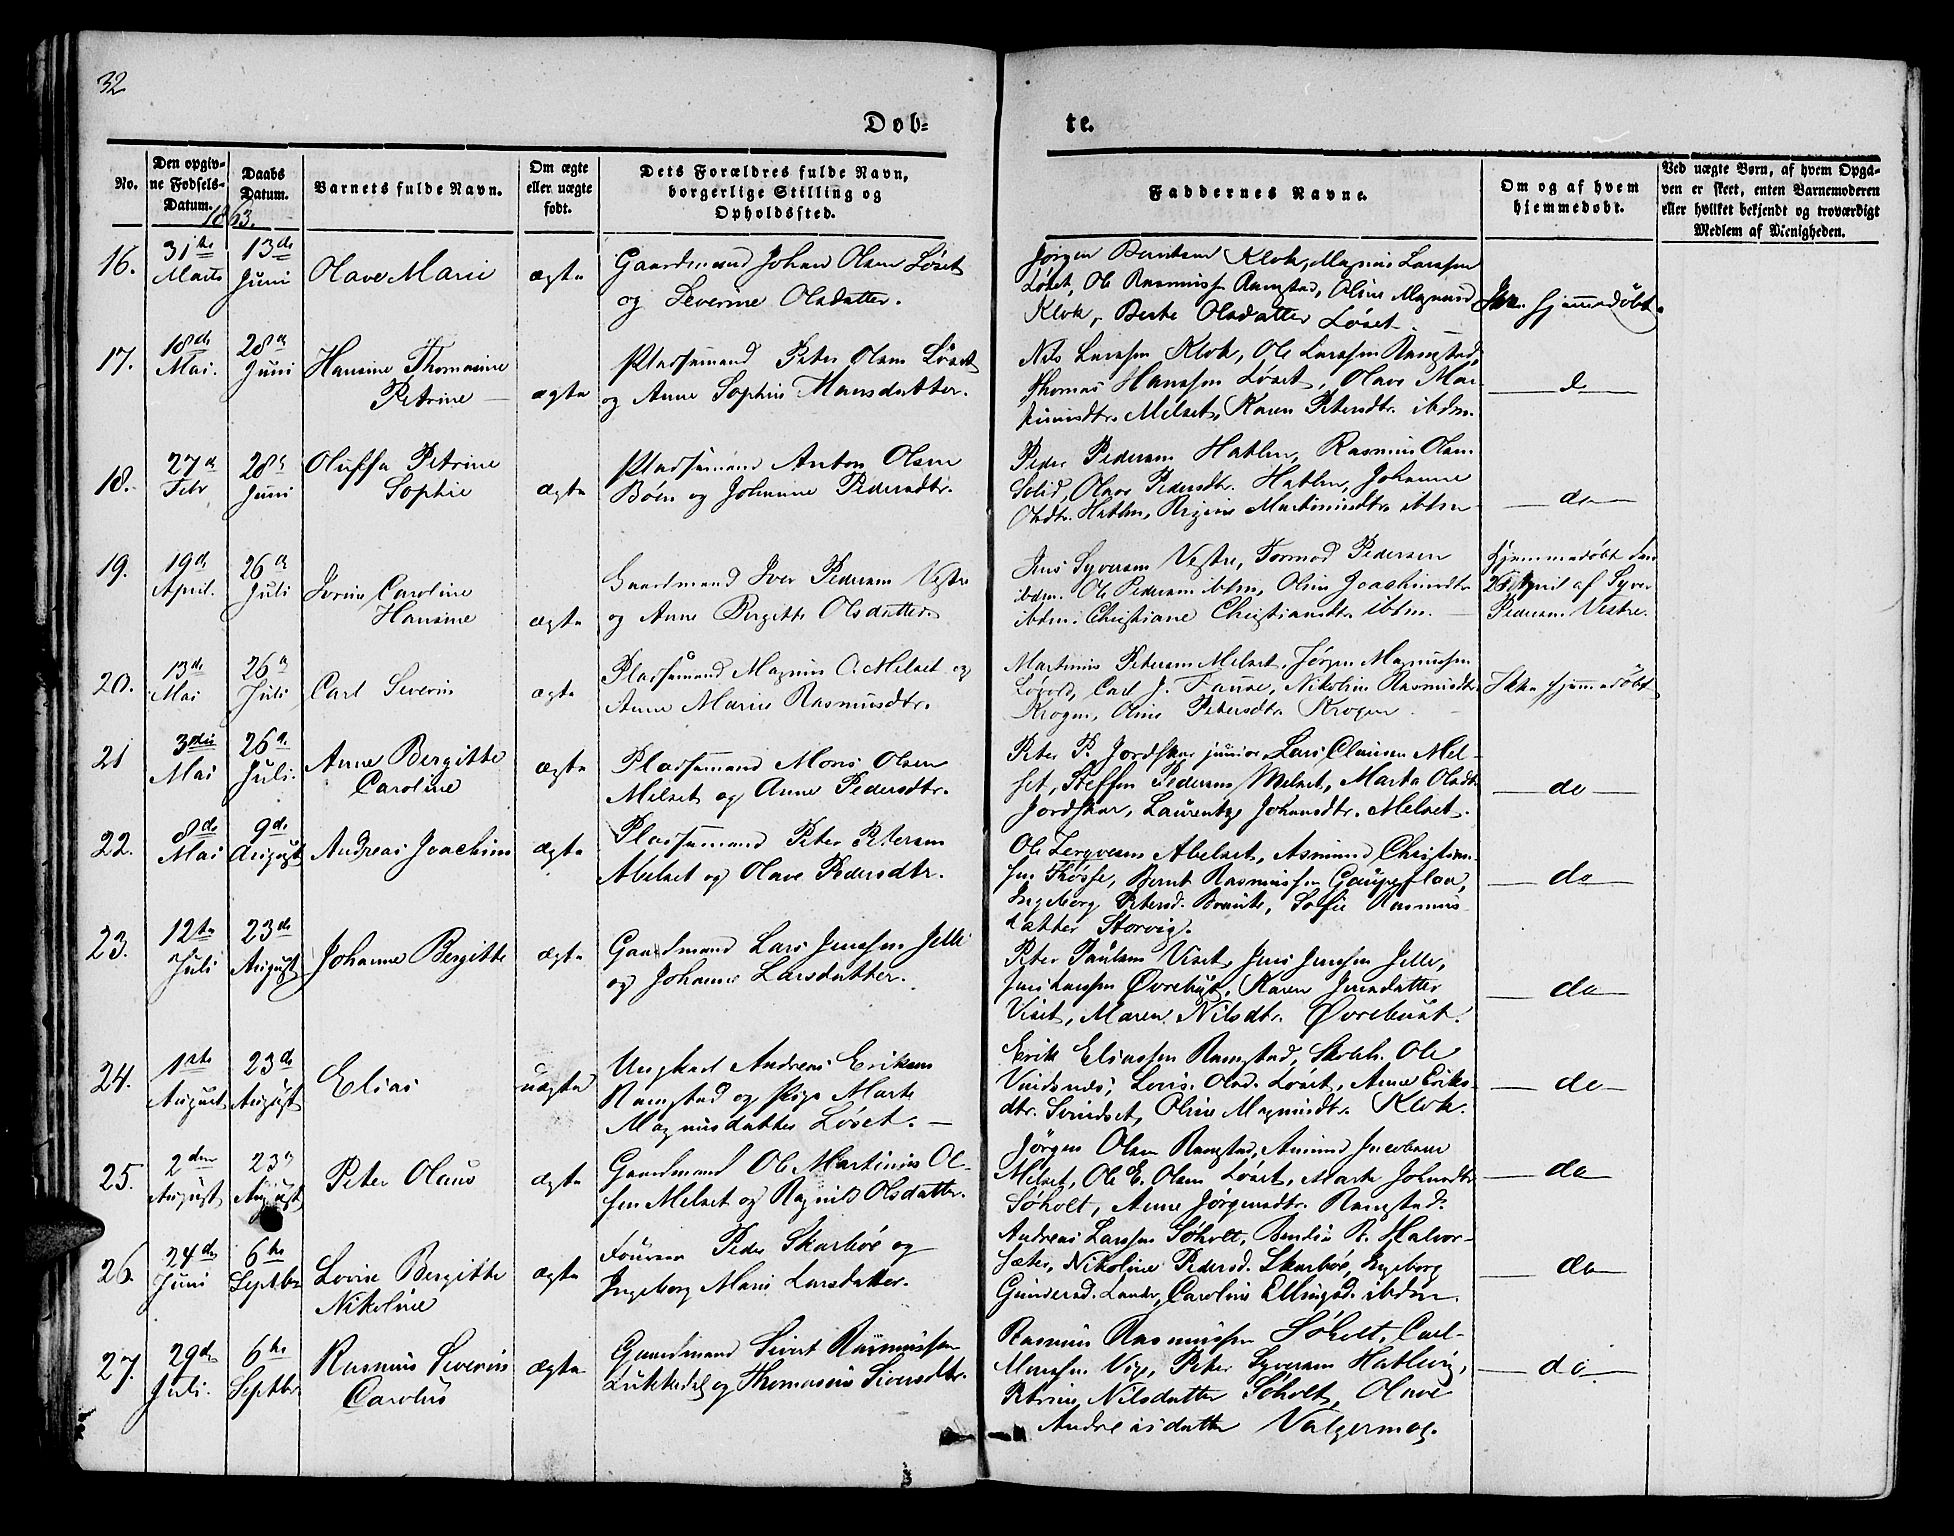 32
Døb=
te.
No.
Den opgiv-
ne Fødsels-
Datum.
Daabs
Datum.
Barnets fulde Navn.
Om ægte
eller uægte
født.
Dets Forældres fulde Navn,
borgerlige Stilling og
Opholdssted.
Faddernes Navne.
Om og af hvem
hjemmedøbt.
Ved uægte Børn, af hvem Opga-
ven er skeet, enten Barnemoderen
eller hvilket bekjendt og troværdigt
Medlem af Menigheden.
1863.
16.
31te
Marts
13de
Juni
Olave Marie
ægte
Gaardmand Johan Olsen Løset
og Severine Olsdatter.
Jørgen Berntsen Klok, Magnus Larssen
Løset, Ole Rasmussen Ramstad, Oline Magnusd
Klok, Berte Olsdatter Løset.
Ikke hjemmedøbt.
17.
18de
Mai.
28de
Juni
Hansine Thomasine
Petrine
ægte
Pladsemand Peter Olsen Løset
og Anne Sophie Hansdatter.
Nils Larssen Klok, Ole Larssen Ramstad,
Thomas Hanssen Løset, Olave Mar-
Melset, Karen Petersdtr. ibdm.
d
18.
27de
Febr
28de
Juni
Oluffa Petrine
Sophie
ægte
Pladsemand Anton Olsen
Bøen og Johanne Pedersdtr.
Peder Pedersen Hatlen, Rasmus Olsen
Solid, Olave Pedersdtr. Hatlen, Johanne
Olsdtr. Hatlen, Martinusdtr. ibdm
do
19.
19de
April.
26de
Juli
Jorine Caroline
Hansine
ægte
Gaardmand Iver Pedersen Vestre
og Anne Bergitte Olsdatter.
Jens Syversen Vestre, Tormod Pedersen
ibdm. Ole Pedersen ibdm, Oline Joachimsdtr.
ibdm. Christiane Christiansdtr. ibdm.
Hjemmedøbt den
April af Syver
Pedersen Vestre.
20.
13de
Mai
26de
Juli
Carl Severin
ægte
Pladsemand Magnus O. Melset og
Anne Marie Rasmusdtr.
Martinus Petersen Melset, Jørgen Magnussen
Carl J. Fause, Nikoline Rasmusdtr.
Krogen, Oline Petersdtr. Krogen
Ikke hjemmedøbt
21
3die
Mai
26de
Juli.
Anne Bergitte
Caroline
ægte
Pladsemand Mons Olsen
Melset og Anne Pedersdtr.
Peter P. Jordskar junior, Lars Clausen Mel-
set, Steffen Pedersen Melset, Marta Olsdtr.
Jordskar, Laurentze Johansdtr. Melset.
do
22.
8de
Mai
9de
August
Andreas Joachim
ægte
Pladsemand Peter Petersen
Abelset og Olave Pedersdtr.
Ole Abelset, Asmund Christian-
sen Fløsfe, Bernt Rasmussen Gaupeflaa,
Ingeborg Petersd. Sofie Rasmus-
datter Storvig.
do
23.
12te
Juli
23de
August
Johanne Bergitte
ægte
Gaardmand Lars Jenssen Jelle
og Johanne Larsdatter.
Peter Paulsen Viset, Jens Jenssen Jelle,
Jens Larssen Øvrebust, Karen Jensdatter
Viset, Maren Nilsdtr. Øvrebust.
do
24.
1ste
August
23de
August
Elias
uægte
Ungkarl Andreas Eriksen
Ramstad og Pige Marte
Magnusdatter Løset.
Erik Eliassen Ramstad, Skoleh. Ole
Vindsnes, Lovis. Olsd. Løset, Anne Eriks-
dtr. Svindset, Oline Magnusdtr. Klok.
do
25.
2den
August
23de
August
Peter Olaus
ægte
Gaardmand Ole Martinus Ol-
sen Melset og Ragnild Olsdatter.
Jørgen Olsen Ramstad, Amund Jacobsen
Melset, Ole E. Olsen Løset, Marte Johnsdtr.
Søholt, Anne Jørgensdtr. Ramstad.
do
26.
24de
Juni
6te
Septbr
Lovise Bergitte
Nikoline
ægte
Peder Skarbøe og
Ingeborg Marie Larsdatter.
Andreas Larssen Søholt, R. Halvor-
sæter, Nikoline Pedersd. Skarbøe, Ingeborg
Gundersd. Caroline Ellingsd. ibdm.
do
27.
29de
Juli.
6te
Septbr
Rasmus Severin
Carolus
ægte
Gaardmand Sivert Rasmussen
Lukkedal og Thomasine Siversdtr.
Rasmus Rasmussen Søholt, Carl
Peter Syversen Hatlevig,
Petrine Nilsdatter Søholt, Olave
Andreasdatter Valgermog.
do.